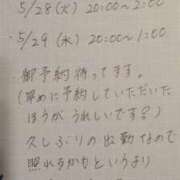 5/28(火) 20:00~2:00
・5/29 (水) 20:00~1:00
御予約待ってます。
(早めに予約していただいた
ほうがうれしいです?)
久しぶりの出勤なので
照れるかもというより